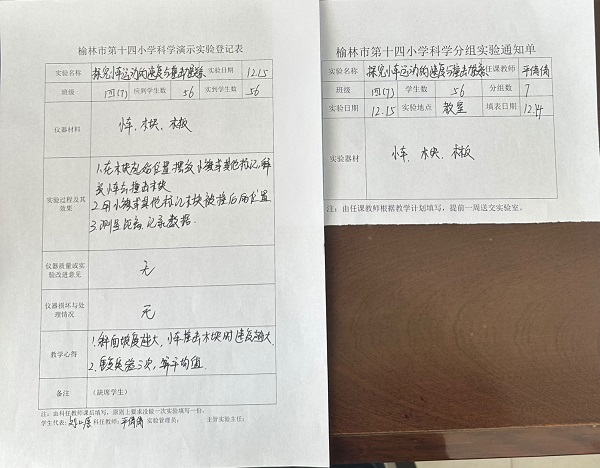 榆林市第十四小学科学演示实验登记表
实验名称 探究小车运动的速度与撞击 实验日期 12.15
班级 四(7) 应到学生数 56 实到学生数 56
仪器材料 小车、木块、木板
实验过程及其效果
1.在木块起始位置摆放小旗或其他标记,释放小车与撞击木块
2.用小旗或其他标记木块被撞后的位置
3.测量距离,记录数据.
仪器质量或实验改进意见 无
仪器损坏与处理情况 无
教学心得
1.斜面坡度越大,小车撞击木块时速度越大
2.重复实验三次,算平均值.
备注 (缺席学生)
注:由科任教师课后填写,原则上要求没做一次实验填写一份。
学生代表: 科任教师:平倩倩 实验管理员: 主管实验主任:
榆林市第十四小学科学分组实验通知单
实验名称 探究小车运动的速度与撞击 任课教师 平倩倩
班级 四(7) 学生数 56 分组数 7
实验日期 12.15 实验地点 教室 填表日期 12.14
实验器材 小车、木块、木板
注:由任课教师根据教学计划填写,提前一周送交实验室。